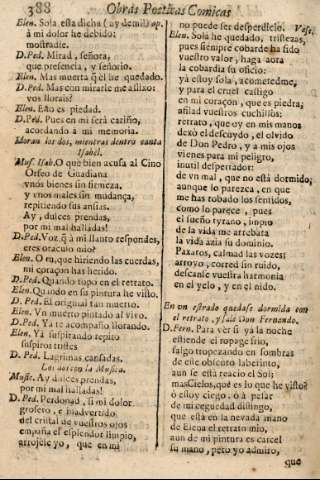 388 Obras Poeticas Comicas
Elen. Sola esta dicha (ay de mi!) ap.
à mi dolor he debido:
mostradle.
D. Ped. Mirad, señora,
que presencia, y señorio.
Elen. Mas muerta q̃ èl he quedado.
D. Ped. Mas con mirarle me aflixo:
vos llorais?
Elen. Esto es piedad.
D. Ped. Pues en mi serà cariño,
acordando à mi memoria.
Lloran los dos, mientras dentro canta
Isabèl.
Mus. Isab. O què bien acusa al Cino
Orfeo de Guadiana
vnos bienes sin firmeza,
y vnos males sin mudança,
repitiendo sus ansias.
Ay, dulces prendas,
por mi mal halladas!
D. Ped. Voz, q̃ à mi llanto respondes,
eres oraculo mio?
Elen. O tu, que hiriendo las cuerdas,
mi coraçon has herido.
D. Ped. Quando topo en el retrato.
Elen. Quando en su pintura he visto.
D. Ped. El original tan muerto.
Elen. Vn muerto pintado al vivo.
D. Ped. Ya te acompaño llorando.
Elen. Yà suspirando repito
suspiros tristes
D. Ped. Lagrimas cansadas.
Los dos con la Musica.
Music. Ay dulces prendas,
por mi mal halladas!
D. Ped. Perdonad, si mi dolor
grosero, e inadvertido
del cristal de vuestros ojos
empaña el esplendor limpio,
arrojele yo, que en mi
no puede ser desperdicio. Vase.
Elen. Sola he quedado, tristezas,
pues siempre cobarde ha sido
vuestro valor, haga aora
la cobardia su oficio:
yà estoy sola, acometedme,
y para el cruel castigo
en mi coraçon, que es piedra,
afilad vuestros cuchillos:
retrato, que oy en mis manos
dexò el descuydo, el olvido
de Don Pedro, y a mis ojos
vienes para mi peligro,
inutil despertador:
de vn mal, que no està dormido,
aunque lo parezca, en que
me has robado los sentidos,
como lo parece, pues
el sueño tyrano, impio
de la vida me arrebata
la vida azia su dominio.
Paxaros, calmad las vozes:
arroyo, corred sin ruido,
descanse vuestra harmonia
en el yelo, y en el nido.
En vn estrado quedase dormida con
el retrato, y sale Don Fernando.
D. Fern. Para ver si yà la noche
estiende el ropage frio,
salgo tropezando en sombras
de este obscuro laberinto,
aun se està reacio el Sol;
mas Cielos, què es lo que he visto?
ò estoy ciego, ò à pesar
de mi ceguedad distingo,
que està en la nevada mano
de Elena el retrato mio,
aun de mi pintura es carcel
su mano, pero yo admiro,
que